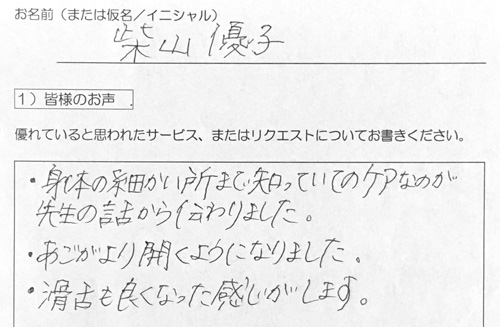 お名前（または仮名／イニシャル）
柴山優子
１）皆様のお声
優れていると思われたサービス、またはリクエストについてお書きください。
・身体の細かい所まで知っていてのケアなのが
先生の話から伝わりました。
・あごがより開くようになりました。
・滑舌も良くなった感じがします。